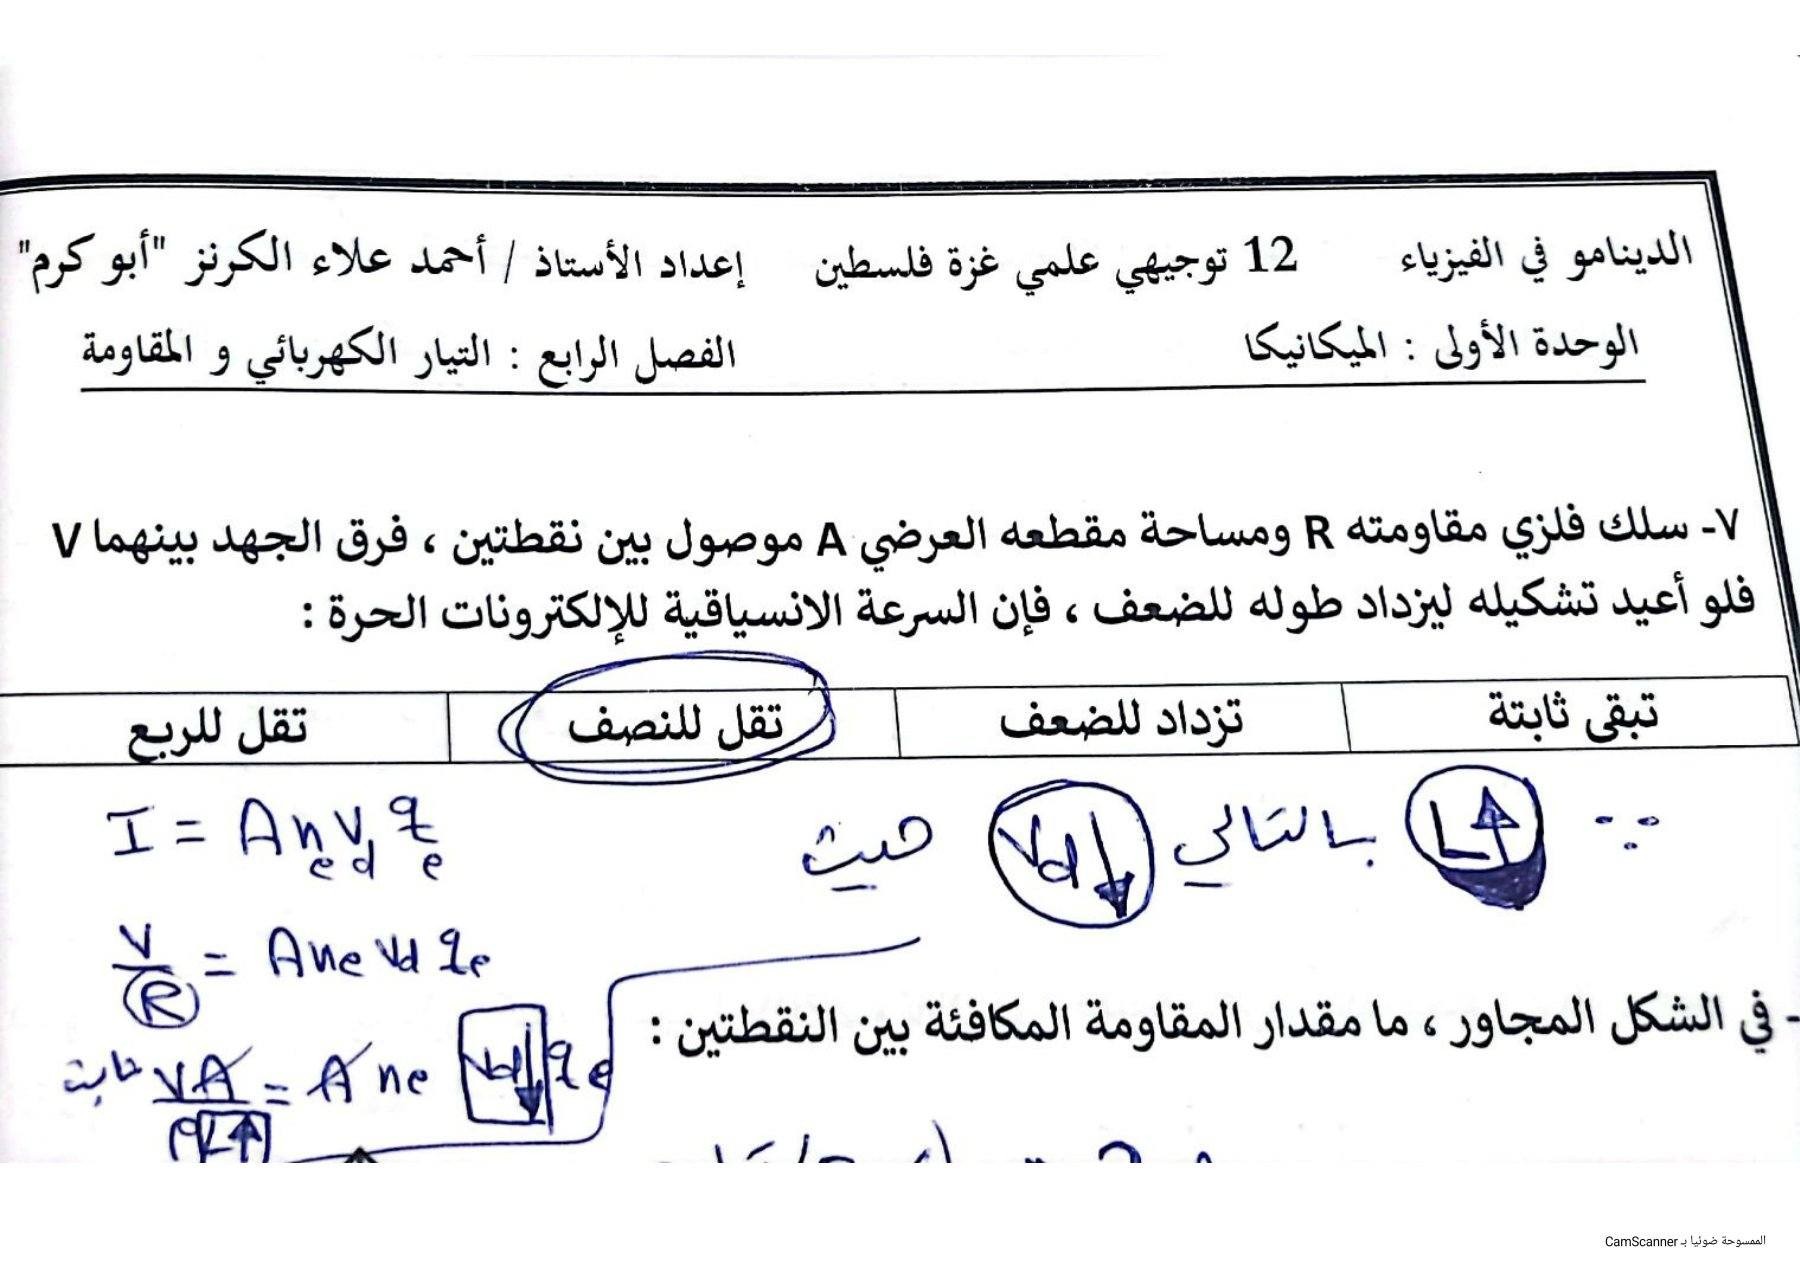 الدينامو في الفيزياء 12 توجيهي علمي غزة فلسطين إعداد الأستاذ / أحمد علاء الكرنز "أبو كرم"
الوحدة الأولى : الميكانيكا الفصل الرابع : التيار الكهربائي و المقاومة
٧- سلك فلزي مقاومته R ومساحة مقطعه العرضي A موصول بين نقطتين ، فرق الجهد بينهما V
فلو أعيد تشكيله ليزداد طوله للضعف ، فإن السرعة الانسياقية للإلكترونات الحرة :
تبقى ثابتة تزداد للضعف تقل للنصف تقل للربع
∵ L↑ بالتالي Vd↓ حيث
I = A ne Vd qe
V/R = A ne Vd qe
ثابت VA/ρL↑ = A ne Vd↓ qe
- في الشكل المجاور ، ما مقدار المقاومة المكافئة بين النقطتين :
الممسوحة ضوئيا بـ CamScanner